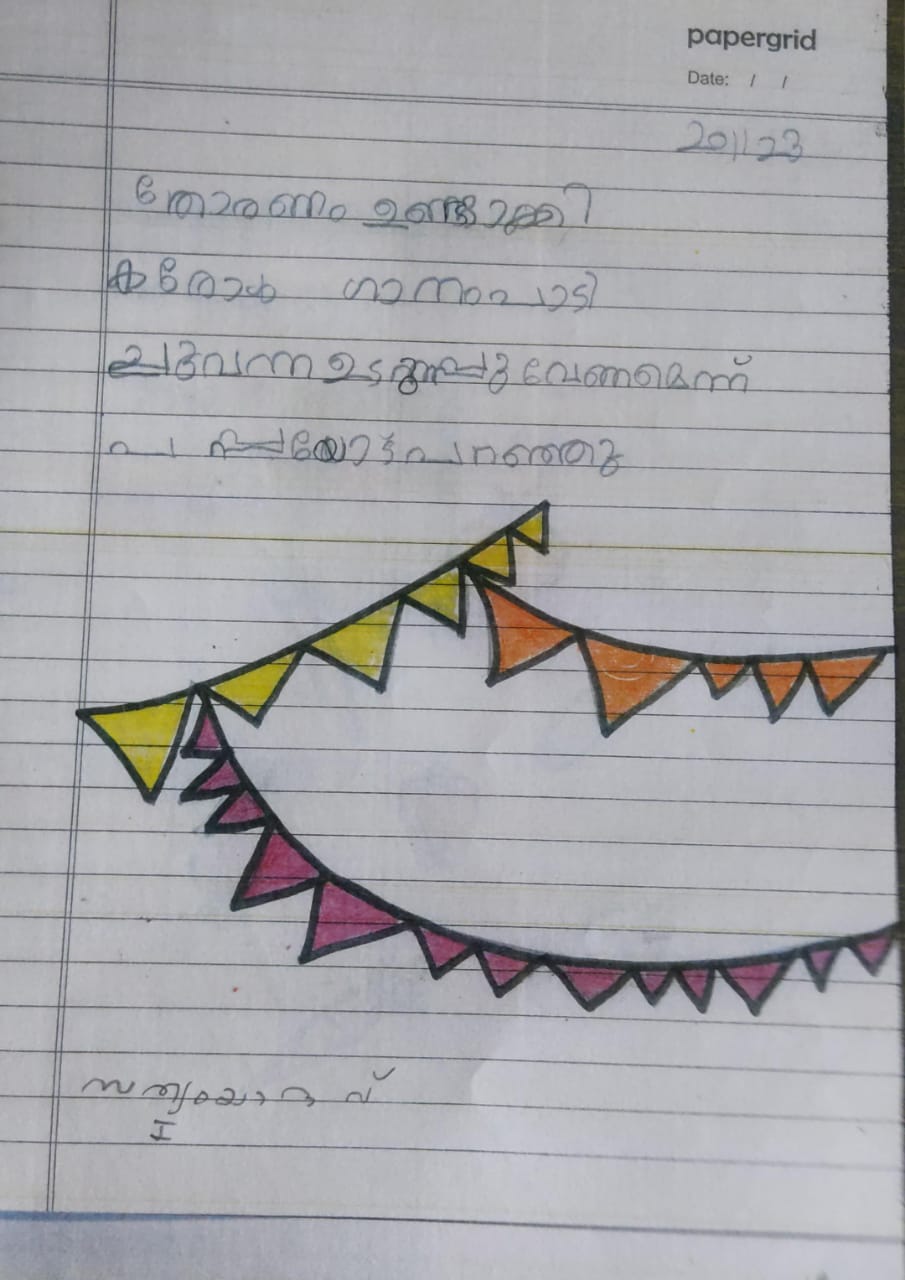 papergrid
Date: / /
20 11 23
തോരണം ഉണ്ടാക്കി
കരോൾ ഗാനം പാടി
ചുവന്ന ഉടുപ്പു വേണമെന്ന്
പപ്പയോട് പറഞ്ഞു
സത്യം യാദവ്
I